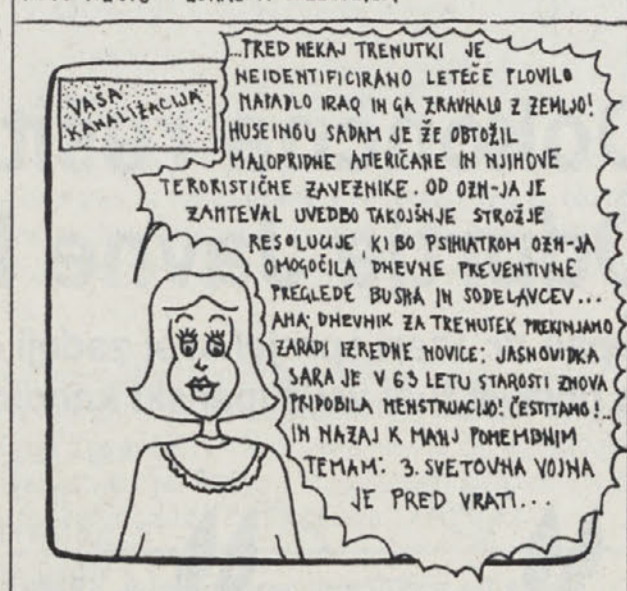 VAŠA
KANALIZACIJA
...PRED NEKAJ TRENUTKI JE
NEIDENTIFICIRANO LETEČE PLOVILO
NAPADLO IRAQ IN GA ZRAVNALO Z ZEMLJO!
HUSEINOU SADAM JE ŽE OBTOŽIL
MALOPRIDNE AMERIČANE IN NJIHOVE
TERORISTIČNE ZAVEZNIKE. OD OZN-JA JE
ZAHTEVAL UVEDBO TAKOJŠNJE STROŽJE
RESOLUCIJE, KI BO PSIHIATROM OZN-JA
OMOGOČILA DNEVNE PREVENTIVNE
PREGLEDE BUSHA IN SODELAVCEV...
AHA, DNEVNIK ZA TRENUTEK PREKINJAMO
ZARADI IZREDNE NOVICE: JASNOVIDKA
SARA JE V 63 LETU STAROSTI ZNOVA
PRIDOBILA MENSTRUACIJO! ČESTITAMO!..
IN NAZAJ K MANJ POMEMBNIM
TEMAM: 3. SVETOVNA VOJNA
JE PRED VRATI...